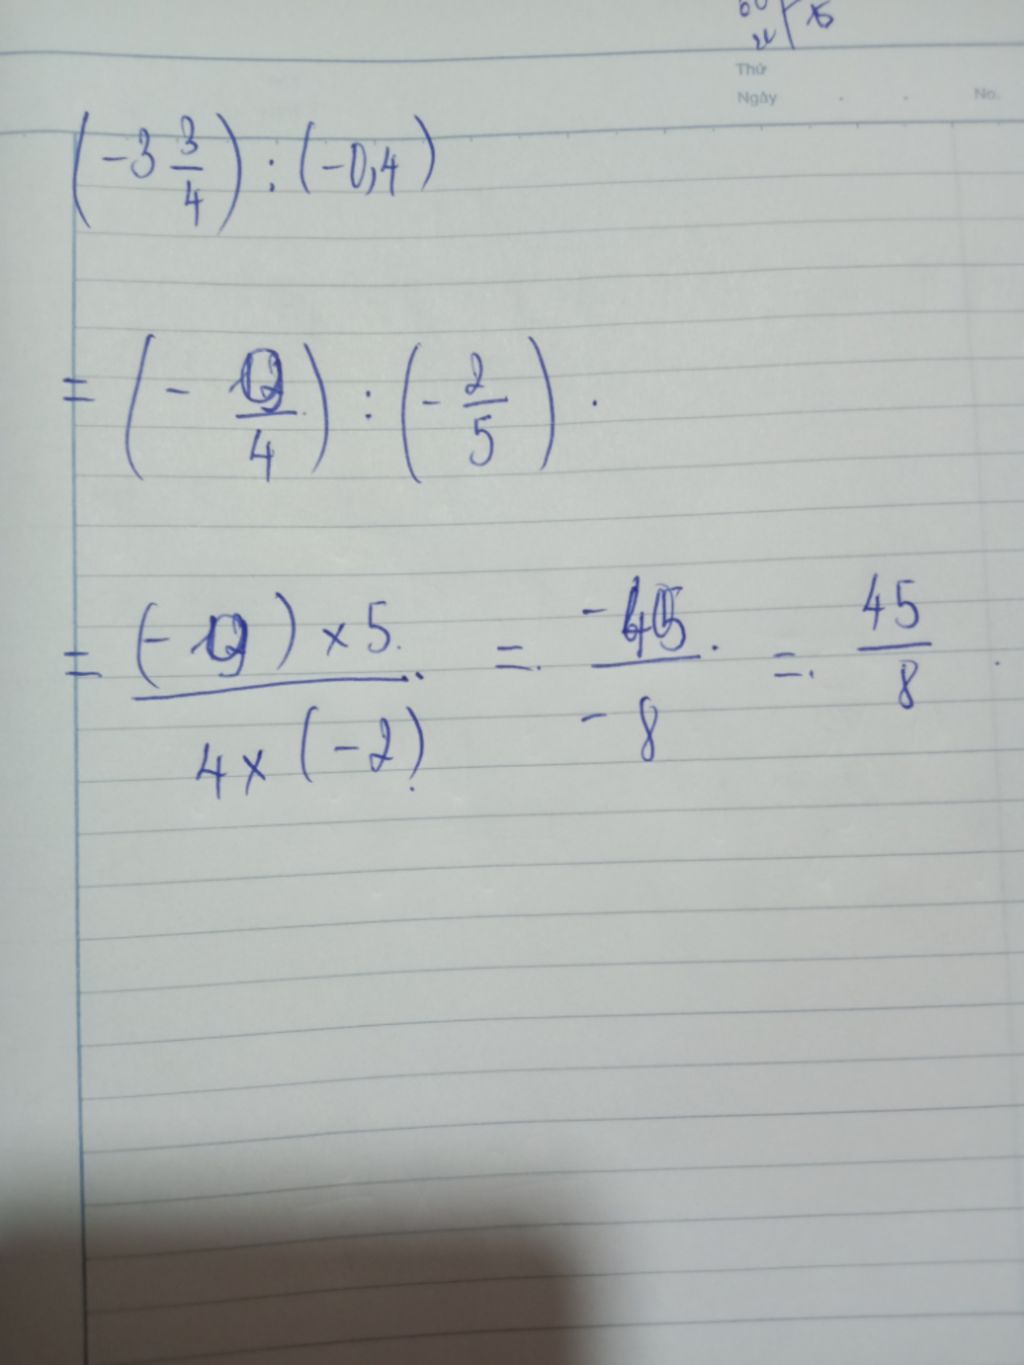 Thứ
Ngày . . No.
(-3 3/4) : (-0,4)
= (- 9/4) : (- 2/5) .
= (-9) × 5 / 4 × (-2) = -45 / -8 = 45/8